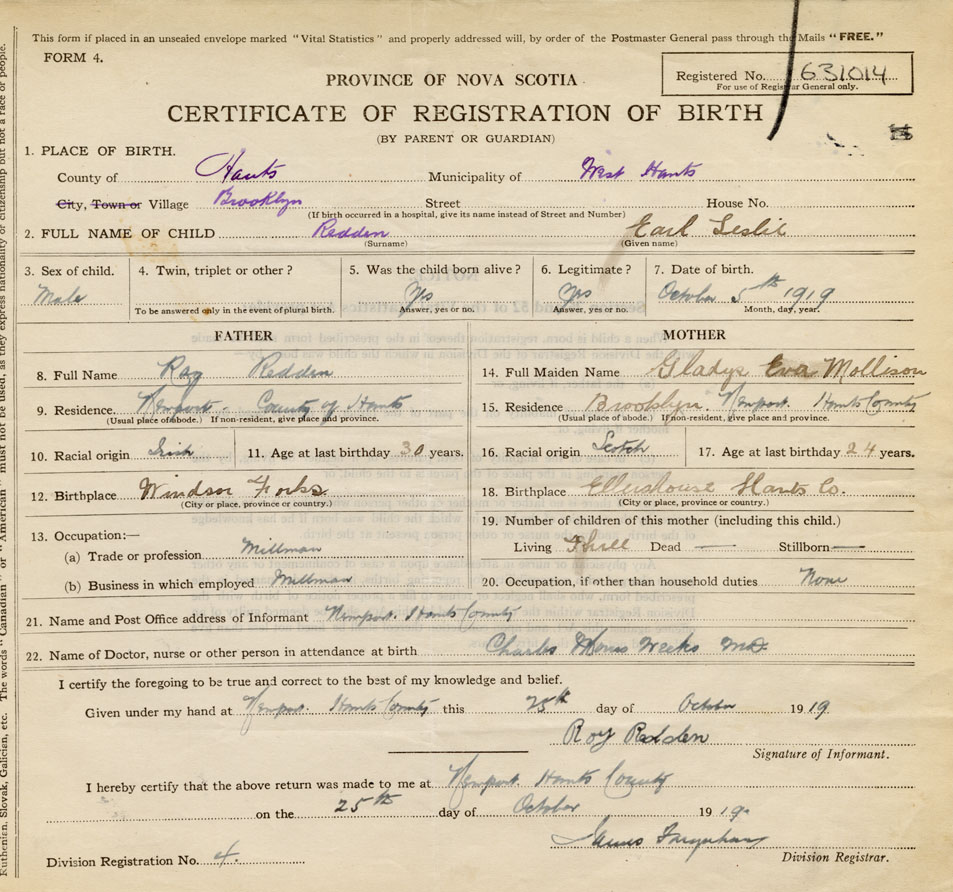 This form if placed in an unsealed envelope marked "Vital Statistics" and properly addressed will, by order of the Postmaster General pass through the Mails "FREE."
FORM 4.
Registered No. 631014
For use of Registrar General only.
PROVINCE OF NOVA SCOTIA
CERTIFICATE OF REGISTRATION OF BIRTH
(BY PARENT OR GUARDIAN)
1. PLACE OF BIRTH.
County of Hants Municipality of West Hants
City, Town or Village Brooklyn Street House No.
(If birth occurred in a hospital, give its name instead of Street and Number)
2. FULL NAME OF CHILD Redden Earl Leslie
(Surname) (Given name)
3. Sex of child. 4. Twin, triplet or other? 5. Was the child born alive? 6. Legitimate? 7. Date of birth.
Male Yes Yes October 5th 1919
To be answered only in the event of plural birth. Answer, yes or no. Answer, yes or no. Month, day, year.
FATHER MOTHER
8. Full Name Roy Redden 14. Full Maiden Name Gladys Eva Mollison
9. Residence Newport - County of Hants 15. Residence Brooklyn. Newport. Hants County
(Usual place of abode.) If non-resident, give place and province. (Usual place of abode.) If non-resident, give place and province.
10. Racial origin Irish 11. Age at last birthday 30 years. 16. Racial origin Scotch 17. Age at last birthday 24 years.
12. Birthplace Windsor Forks 18. Birthplace Ellershouse Hants Co.
(City or place, province or country.) (City or place, province or country.)
19. Number of children of this mother (including this child.)
13. Occupation:—
(a) Trade or profession Millman Living Dead — Stillborn —
(b) Business in which employed Millman 20. Occupation, if other than household duties None
21. Name and Post Office address of Informant Newport. Hants County
22. Name of Doctor, nurse or other person in attendance at birth Charles Weeks M.D.
I certify the foregoing to be true and correct to the best of my knowledge and belief.
Given under my hand at Newport. Hants County this 25th day of October 1919
Roy Redden
Signature of Informant.
I hereby certify that the above return was made to me at Newport. Hants County
on the 25th day of October 1919
James Farquhar
Division Registration No. 4. Division Registrar.